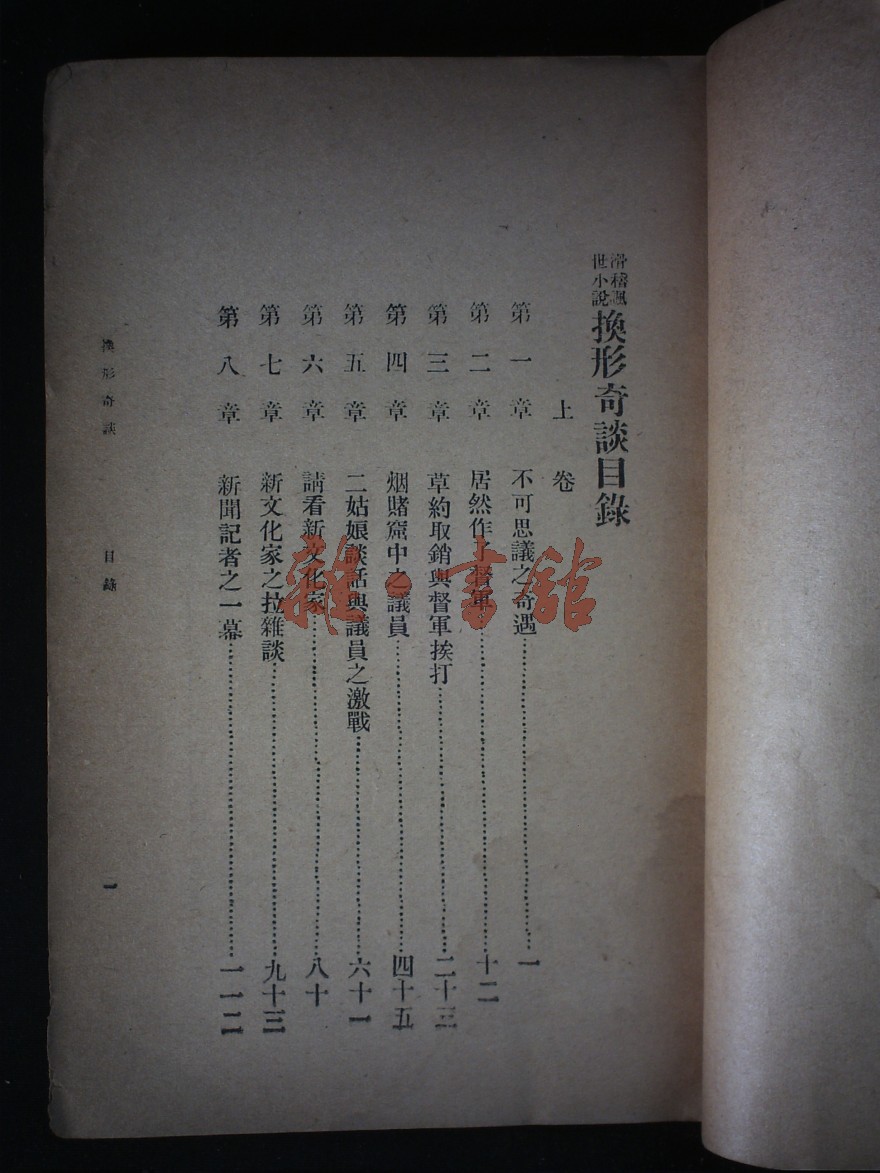 滑稽諷世小說 換形奇談目錄
上卷
第一章 不可思議之奇遇……一
第二章 居然作了督軍……十二
第三章 草約取銷與督軍挨打……二十三
第四章 烟賭窟中之議員……四十五
第五章 二姑娘談話與議員之激戰……六十一
第六章 請看新文化家……八十
第七章 新文化家之拉雜談……九十三
第八章 新聞記者之一幕……一一二
換形奇談 目錄 一
雜·書館